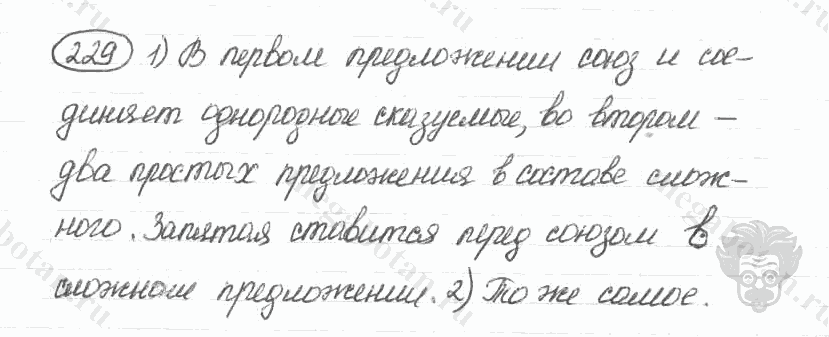 229 1) В первом предложении союз и сое-
диняет однородные сказуемые, во втором –
два простых предложения в составе слож-
ного. Запятая ставится перед союзом в
сложном предложении. 2) То же самое.